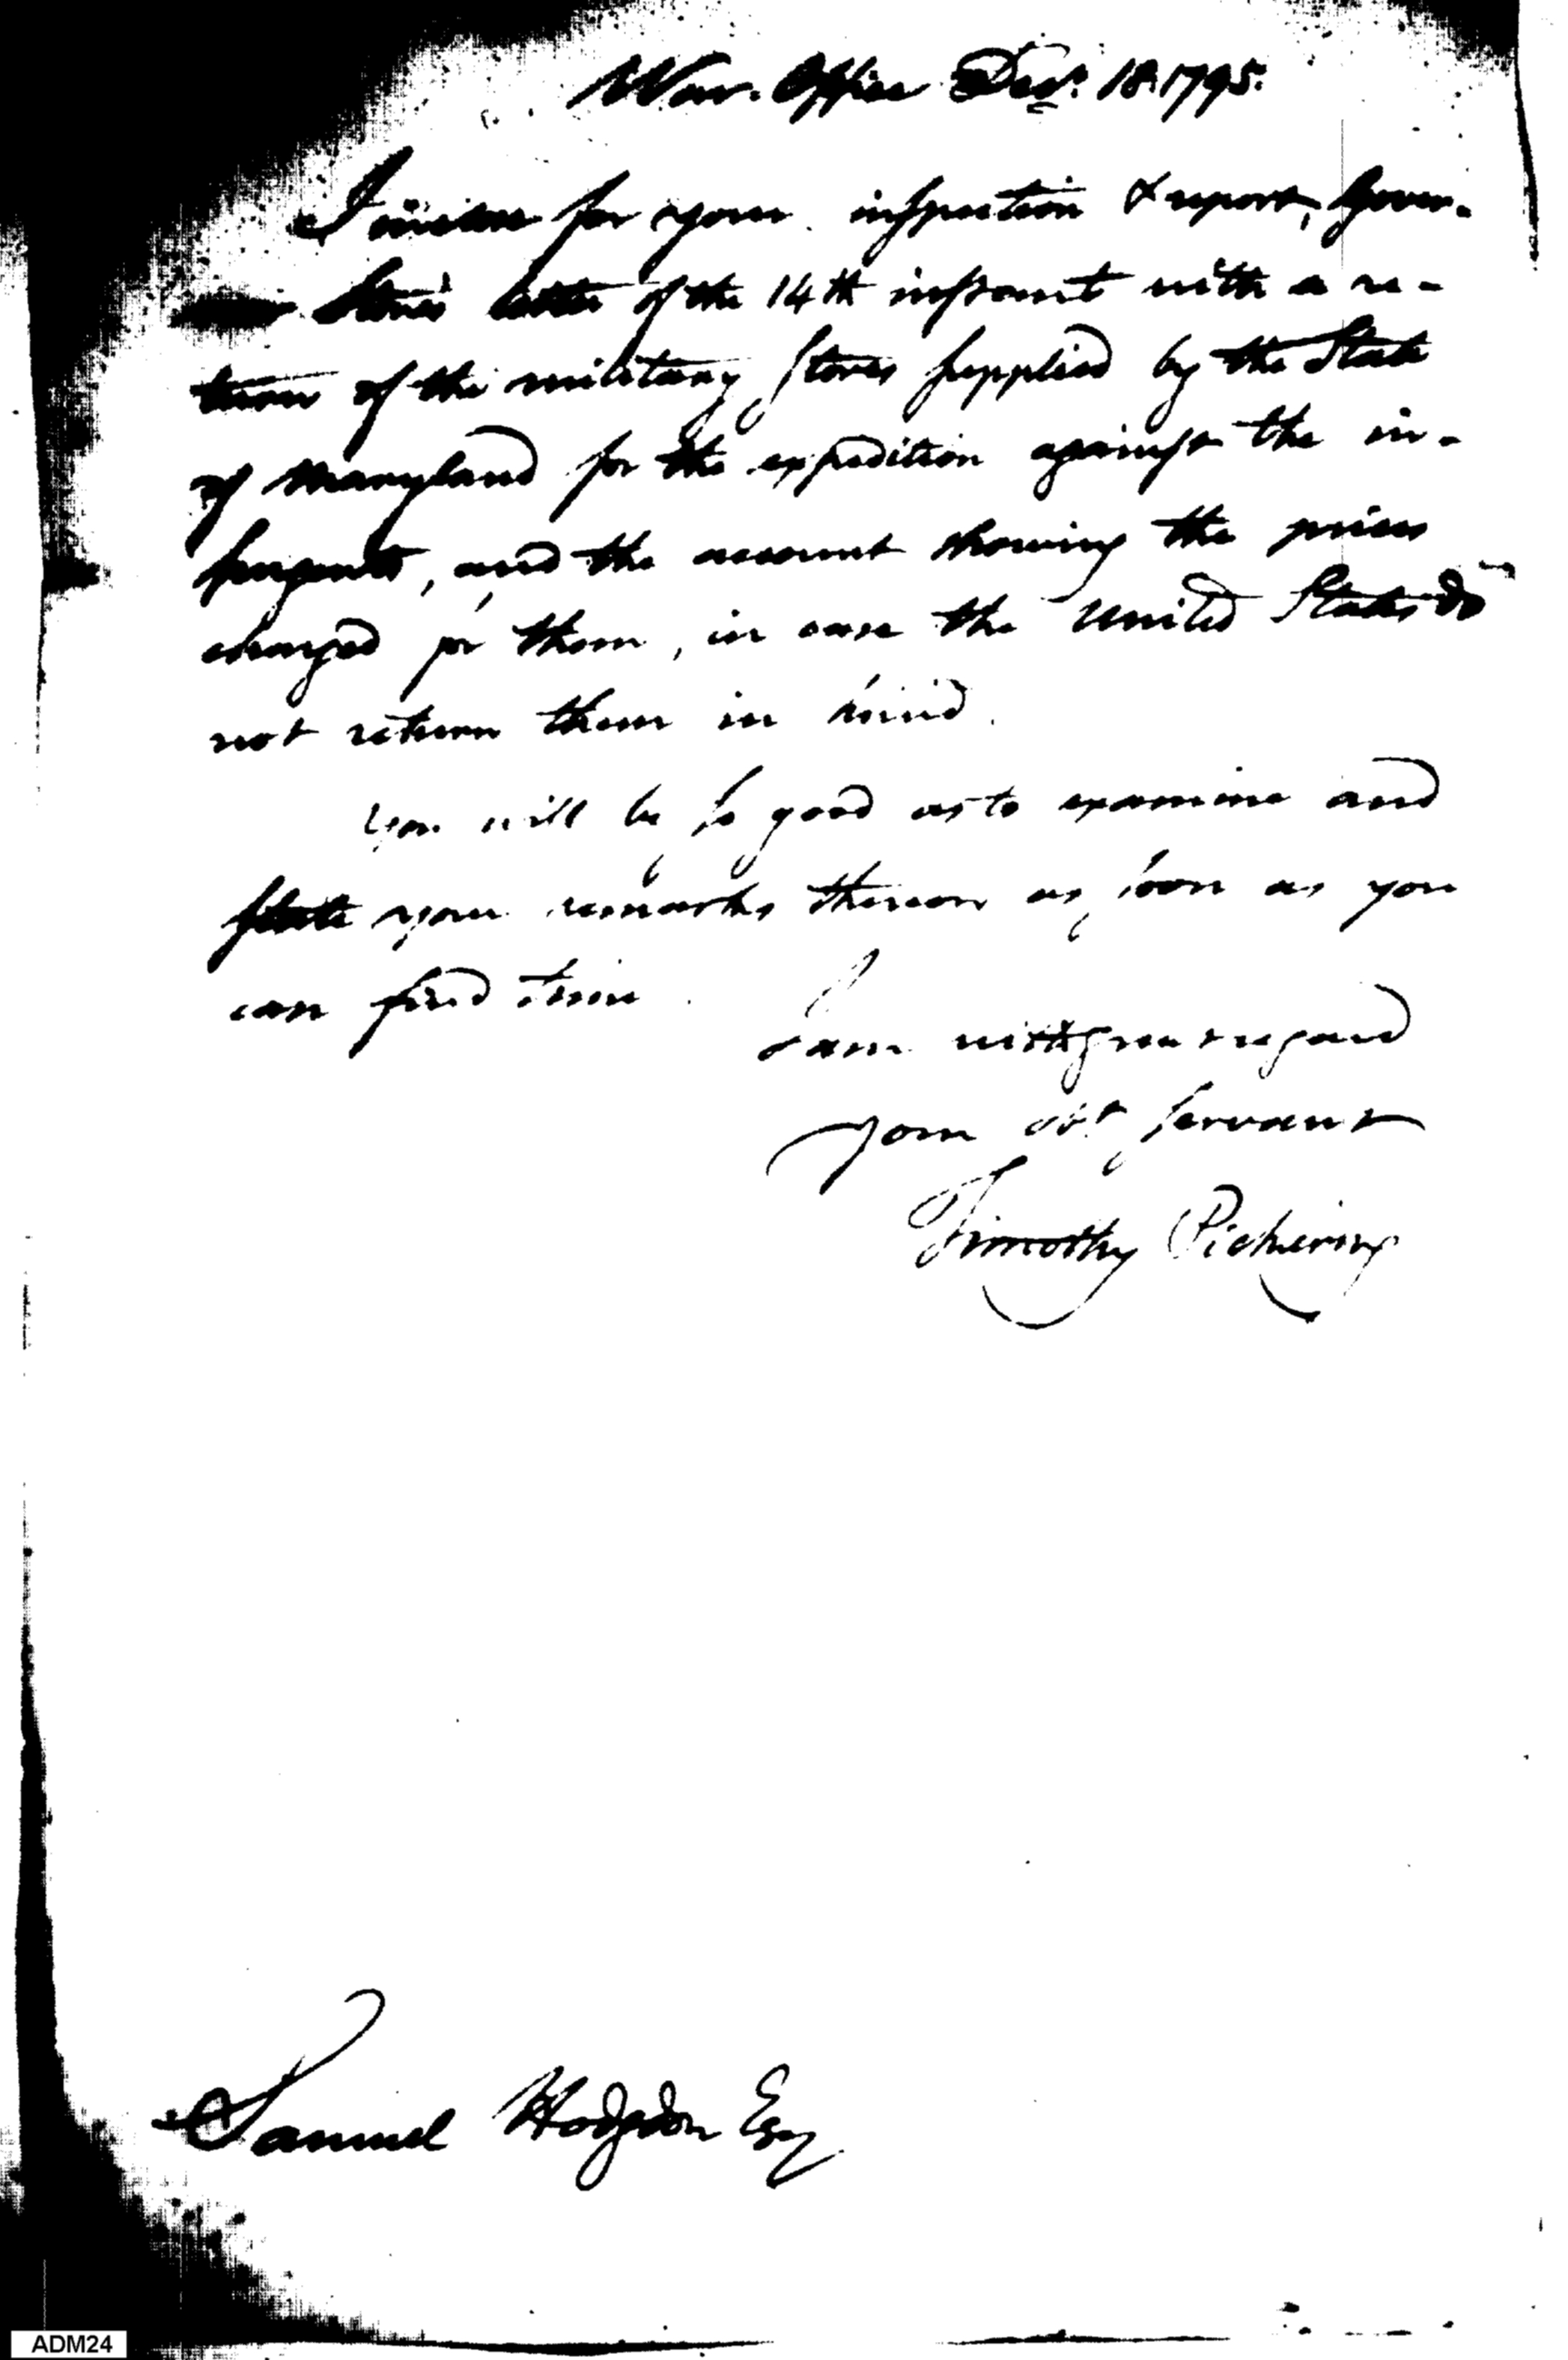 War Office Decr. 18. 1795.
I inclose for your inspection & report, Gover-
nor Stone's letter of the 14th instant with a re-
turn of the military stores supplied by the State
of Maryland for the expedition against the in-
surgents, and the account showing the prices
charged for them, in case the United States do
not return them in kind.
You will be so good as to examine and
state your remarks thereon as soon as you
can find time.
I am with great regard
your obt servant
Timothy Pickering
Samuel Hodgdon Esq
ADM24